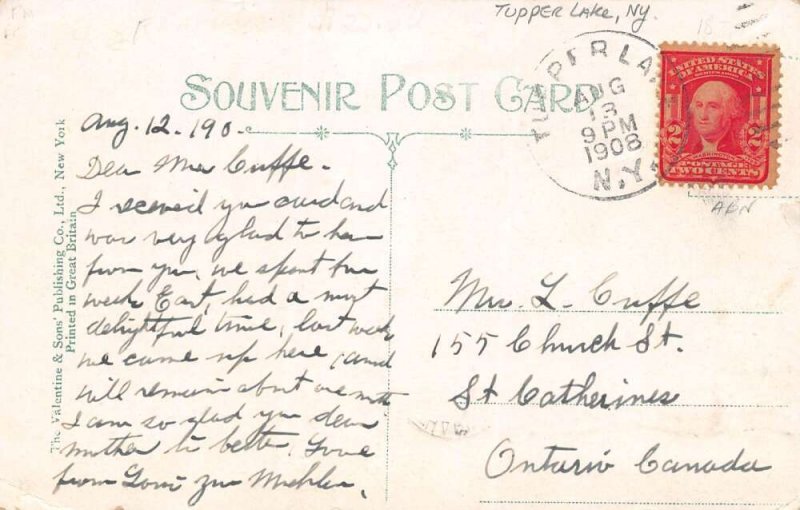 TUPPER LAKE, NY.
SOUVENIR POST CARD
TUPPER LAKE
AUG
13
9 PM
1908
N.Y.
UNITED STATES
OF AMERICA
2 2
WASHINGTON
POSTAGE
TWO CENTS
The Valentine & Sons' Publishing Co., Ltd., New York
Printed in Great Britain
Aug. 12. 190.
Dear Mrs Cuffe.
I received your card and
was very glad to hear
from you, we spent
week East, had a most
delightful time, last week
we came up here, and
will remain about one month
I am so glad your dear
mother is better. Love
from
Mrs. L. Cuffe
155 Church St.
St Catherines
Ontario Canada